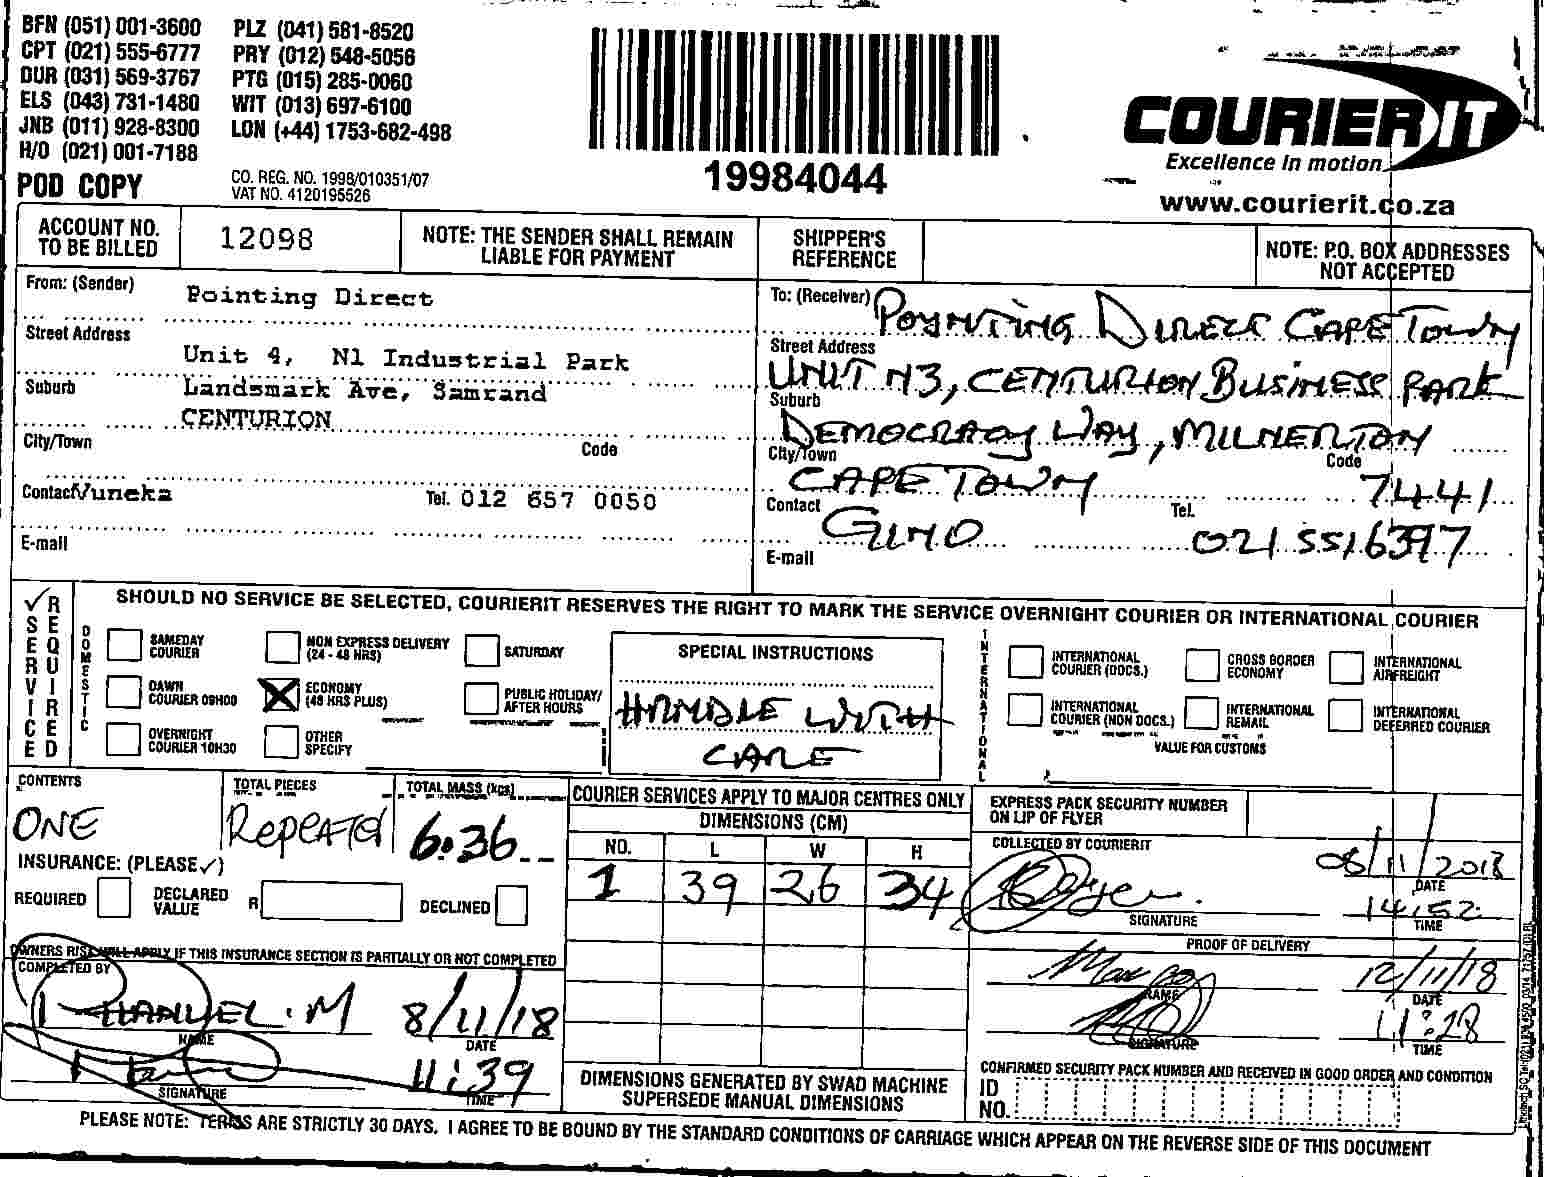 BFN (051) 001-3600 PLZ (041) 581-8520
CPT (021) 555-6777 PRY (012) 548-5056
DUR (031) 569-3767 PTG (015) 285-0060
ELS (043) 731-1480 WIT (013) 697-6100
JNB (011) 928-8300 LON (+44) 1753-682-498
H/O (021) 001-7188
POD COPY
CO. REG. NO. 1998/010351/07
VAT NO. 4120195526
19984044
COURIERIT
Excellence in motion
www.courierit.co.za
ACCOUNT NO. TO BE BILLED
12098
NOTE: THE SENDER SHALL REMAIN LIABLE FOR PAYMENT
SHIPPER'S REFERENCE
NOTE: P.O. BOX ADDRESSES NOT ACCEPTED
From: (Sender) Pointing Direct
Street Address
Unit 4, N1 Industrial Park
Suburb Landsmark Ave, Samrand
CENTURION
City/Town Code
Contact Vuneka Tel. 012 657 0050
E-mail
To: (Receiver) POYNTING DIRECT CAPE TOWN
Street Address
UNIT N3, CENTURION BUSINESS PARK
Suburb
DEMOCRACY WAY, MILNERTON
City/Town Code
CAPE TOWN 7441
Contact GINO Tel. 021 5516397
E-mail
✓ SERVICE REQUIRED
SHOULD NO SERVICE BE SELECTED, COURIERIT RESERVES THE RIGHT TO MARK THE SERVICE OVERNIGHT COURIER OR INTERNATIONAL COURIER
DOMESTIC
SAMEDAY COURIER
NON EXPRESS DELIVERY (24 - 48 HRS)
SATURDAY
DAWN COURIER 09H00
ECONOMY (48 HRS PLUS)
PUBLIC HOLIDAY/ AFTER HOURS
OVERNIGHT COURIER 10H30
OTHER SPECIFY
SPECIAL INSTRUCTIONS
HANDLE WITH
CARE
INTERNATIONAL
INTERNATIONAL COURIER (DOCS.)
CROSS BORDER ECONOMY
INTERNATIONAL AIRFREIGHT
INTERNATIONAL COURIER (NON DOCS.)
INTERNATIONAL REMAIL
INTERNATIONAL DEFERRED COURIER
VALUE FOR CUSTOMS
CONTENTS TOTAL PIECES TOTAL MASS (kgs)
ONE REPEATER 6.36
INSURANCE: (PLEASE ✓)
REQUIRED DECLARED VALUE R DECLINED
OWNERS RISK WILL APPLY IF THIS INSURANCE SECTION IS PARTIALLY OR NOT COMPLETED
COMPLETED BY
8/11/18
NAME DATE
11:39
SIGNATURE TIME
COURIER SERVICES APPLY TO MAJOR CENTRES ONLY
DIMENSIONS (CM)
NO. L W H
1 39 26 34
DIMENSIONS GENERATED BY SWAD MACHINE SUPERSEDE MANUAL DIMENSIONS
EXPRESS PACK SECURITY NUMBER ON LIP OF FLYER
COLLECTED BY COURIERIT
08/11/2018
DATE
14:52
SIGNATURE TIME
PROOF OF DELIVERY
12/11/18
NAME DATE
11:28
SIGNATURE TIME
CONFIRMED SECURITY PACK NUMBER AND RECEIVED IN GOOD ORDER AND CONDITION
ID NO.
PLEASE NOTE: TERMS ARE STRICTLY 30 DAYS. I AGREE TO BE BOUND BY THE STANDARD CONDITIONS OF CARRIAGE WHICH APPEAR ON THE REVERSE SIDE OF THIS DOCUMENT